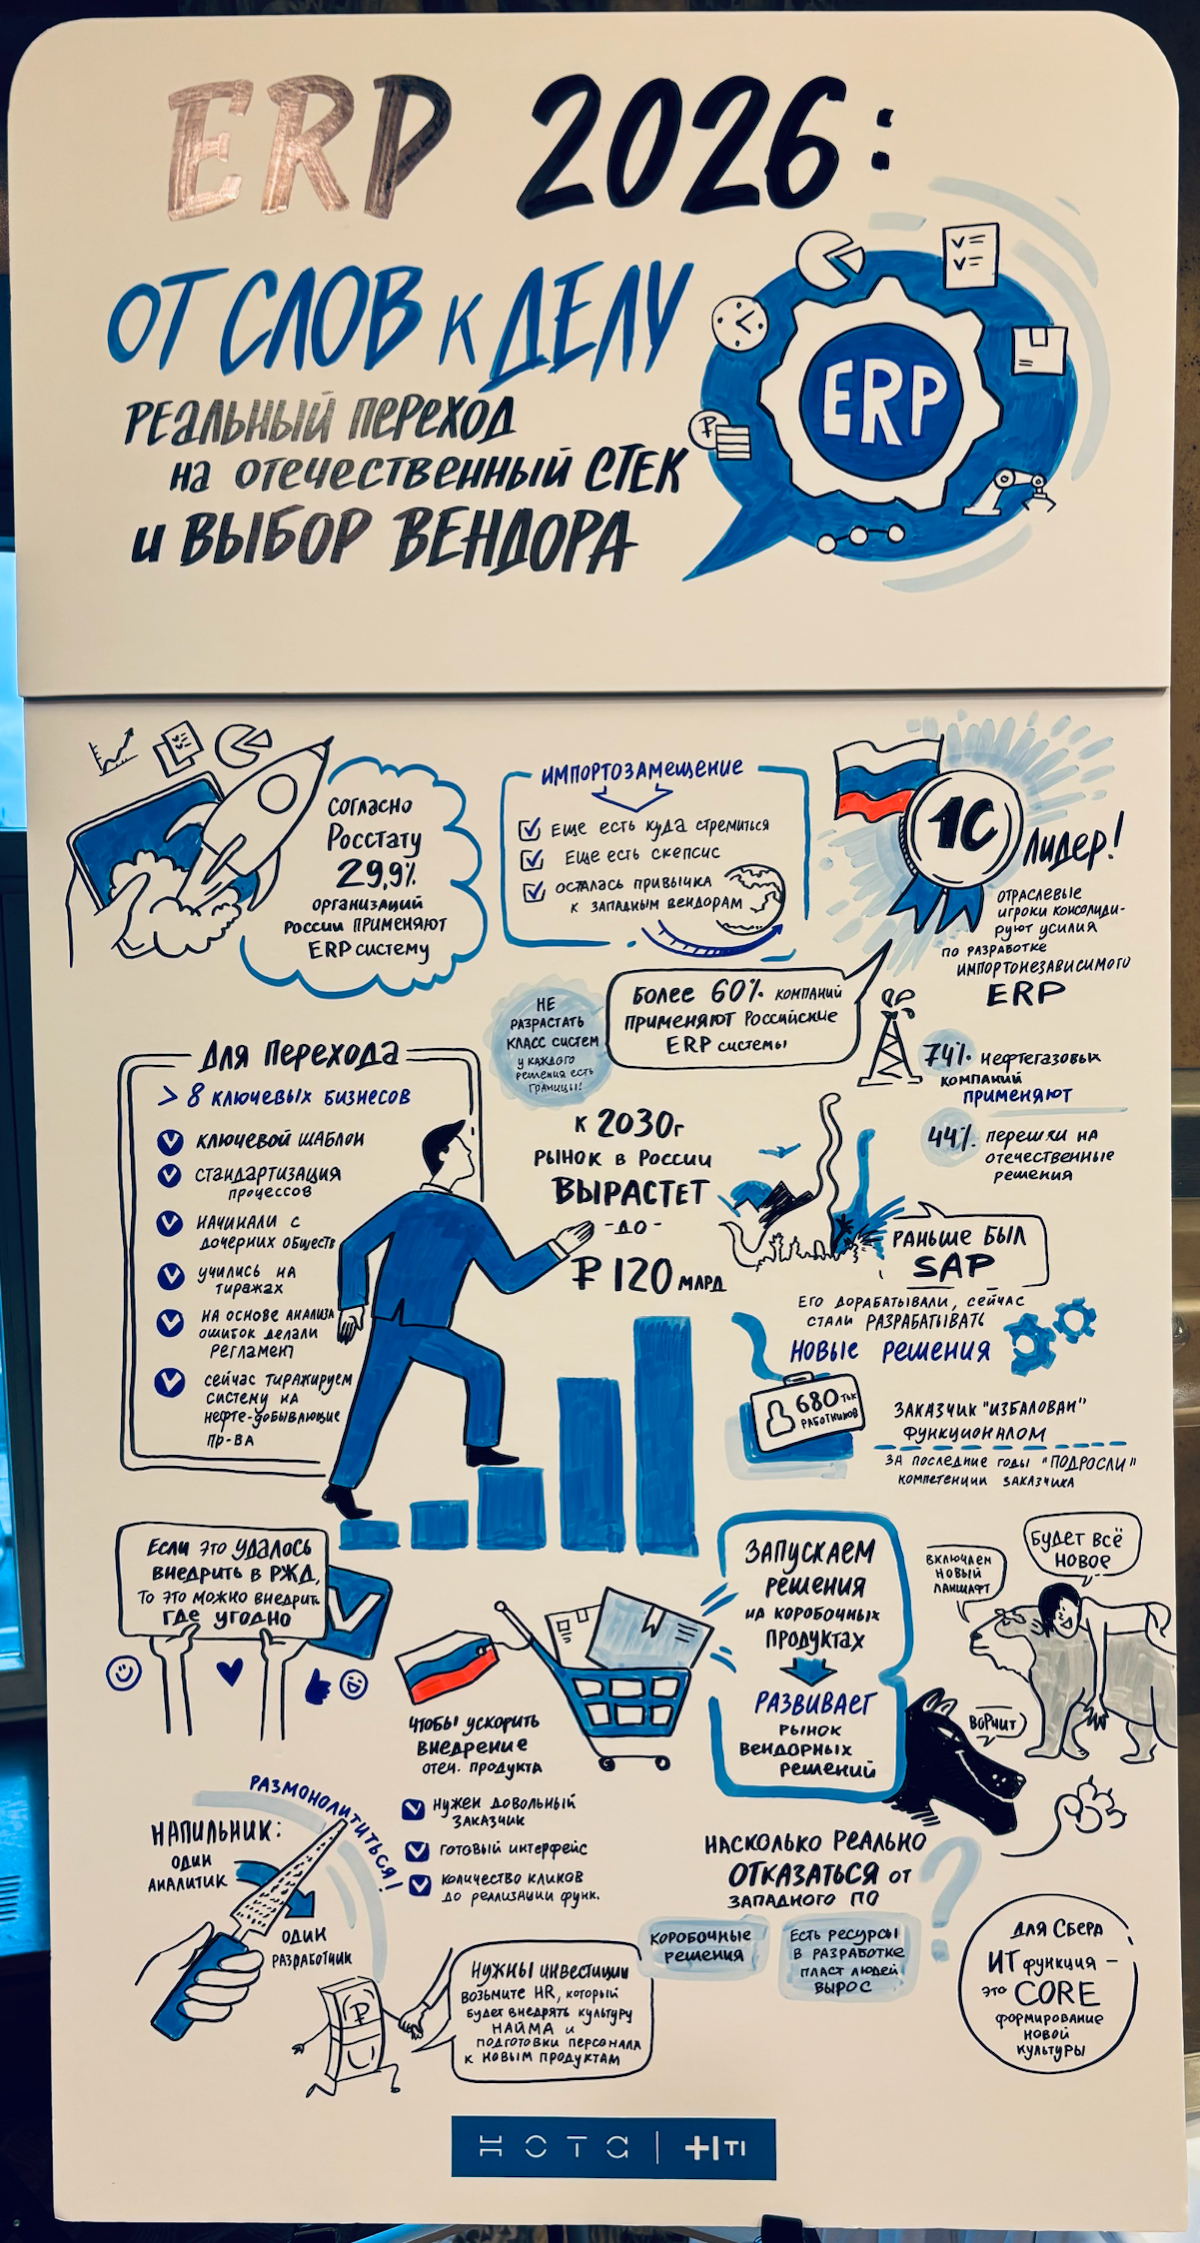 ERP 2026:
ОТ СЛОВ К ДЕЛУ
РЕАЛЬНЫЙ ПЕРЕХОД
НА ОТЕЧЕСТВЕННЫЙ СТЕК
И ВЫБОР ВЕНДОРА
ERP
₽
СОГЛАСНО
РОССТАТУ
29,9%
ОРГАНИЗАЦИЙ
РОССИИ ПРИМЕНЯЮТ
ERP СИСТЕМУ
ИМПОРТОЗАМЕЩЕНИЕ
ЕЩЕ ЕСТЬ КУДА СТРЕМИТЬСЯ
ЕЩЕ ЕСТЬ СКЕПСИС
ОСТАЛАСЬ ПРИВЫЧКА
К ЗАПАДНЫМ ВЕНДОРАМ
1С
ЛИДЕР!
ОТРАСЛЕВЫЕ
ИГРОКИ КОНСОЛИДИ-
РУЮТ УСИЛИЯ
ПО РАЗРАБОТКЕ
ИМПОРТОНЕЗАВИСИМОГО
ERP
НЕ
РАЗРАСТАТЬ
КЛАСС СИСТЕМ
У КАЖДОГО
РЕШЕНИЯ ЕСТЬ
ГРАНИЦЫ!
БОЛЕЕ 60% КОМПАНИЙ
ПРИМЕНЯЮТ РОССИЙСКИЕ
ERP СИСТЕМЫ
74% НЕФТЕГАЗОВЫХ
КОМПАНИЙ
ПРИМЕНЯЮТ
44% ПЕРЕШЛИ НА
ОТЕЧЕСТВЕННЫЕ
РЕШЕНИЯ
ДЛЯ ПЕРЕХОДА
> 8 КЛЮЧЕВЫХ БИЗНЕСОВ
КЛЮЧЕВОЙ ШАБЛОН
СТАНДАРТИЗАЦИЯ
ПРОЦЕССОВ
НАЧИНАЛИ С
ДОЧЕРНИХ ОБЩЕСТВ
УЧИЛИСЬ НА
ТИРАЖАХ
НА ОСНОВЕ АНАЛИЗА
ОШИБОК ДЕЛАЛИ
РЕГЛАМЕНТ
СЕЙЧАС ТИРАЖИРУЕМ
СИСТЕМУ НА
НЕФТЕ-ДОБЫВАЮЩИЕ
ПР-ВА
К 2030г
РЫНОК В РОССИИ
ВЫРАСТЕТ
-ДО-
₽ 120 МЛРД
РАНЬШЕ БЫЛ
SAP
ЕГО ДОРАБАТЫВАЛИ, СЕЙЧАС
СТАЛИ РАЗРАБАТЫВАТЬ
НОВЫЕ РЕШЕНИЯ
680 ТЫС
РАБОТНИКОВ
ЗАКАЗЧИК "ИЗБАЛОВАН"
ФУНКЦИОНАЛОМ
ЗА ПОСЛЕДНИЕ ГОДЫ "ПОДРОСЛИ"
КОМПЕТЕНЦИИ ЗАКАЗЧИКА
ЕСЛИ ЭТО УДАЛОСЬ
ВНЕДРИТЬ В РЖД,
ТО ЭТО МОЖНО ВНЕДРИТЬ
ГДЕ УГОДНО
ЧТОБЫ УСКОРИТЬ
ВНЕДРЕНИЕ
ОТЕЧ. ПРОДУКТА
НУЖЕН ДОВОЛЬНЫЙ
ЗАКАЗЧИК
ГОТОВЫЙ ИНТЕРФЕЙС
КОЛИЧЕСТВО КЛИКОВ
ДО РЕАЛИЗАЦИИ ФУНК.
ЗАПУСКАЕМ
РЕШЕНИЯ
НА КОРОБОЧНЫХ
ПРОДУКТАХ
РАЗВИВАЕТ
РЫНОК
ВЕНДОРНЫХ
РЕШЕНИЙ
ВКЛЮЧАЕМ
НОВЫЙ
ЛАНШАФТ
БУДЕТ ВСЁ
НОВОЕ
ВОРЧИТ
РАЗМОНОЛИТИТЬСЯ!
НАПИЛЬНИК:
ОДИН
АНАЛИТИК
ОДИН
РАЗРАБОТЧИК
НАСКОЛЬКО РЕАЛЬНО
ОТКАЗАТЬСЯ ОТ
ЗАПАДНОГО ПО
?
КОРОБОЧНЫЕ
РЕШЕНИЯ
ЕСТЬ РЕСУРСЫ
В РАЗРАБОТКЕ
ПЛАСТ ЛЮДЕЙ
ВЫРОС
ДЛЯ СБЕРА
ИТ ФУНКЦИЯ –
ЭТО CORE
ФОРМИРОВАНИЕ
НОВОЙ
КУЛЬТУРЫ
₽
НУЖНЫ ИНВЕСТИЦИИ
ВОЗЬМИТЕ HR, КОТОРЫЙ
БУДЕТ ВНЕДРЯТЬ КУЛЬТУРУ
НАЙМА И
ПОДГОТОВКИ ПЕРСОНАЛА
К НОВЫМ ПРОДУКТАМ
НОТА | TI